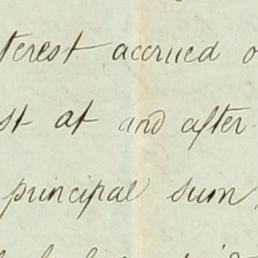 terest accrued o
st at and after
principal sum